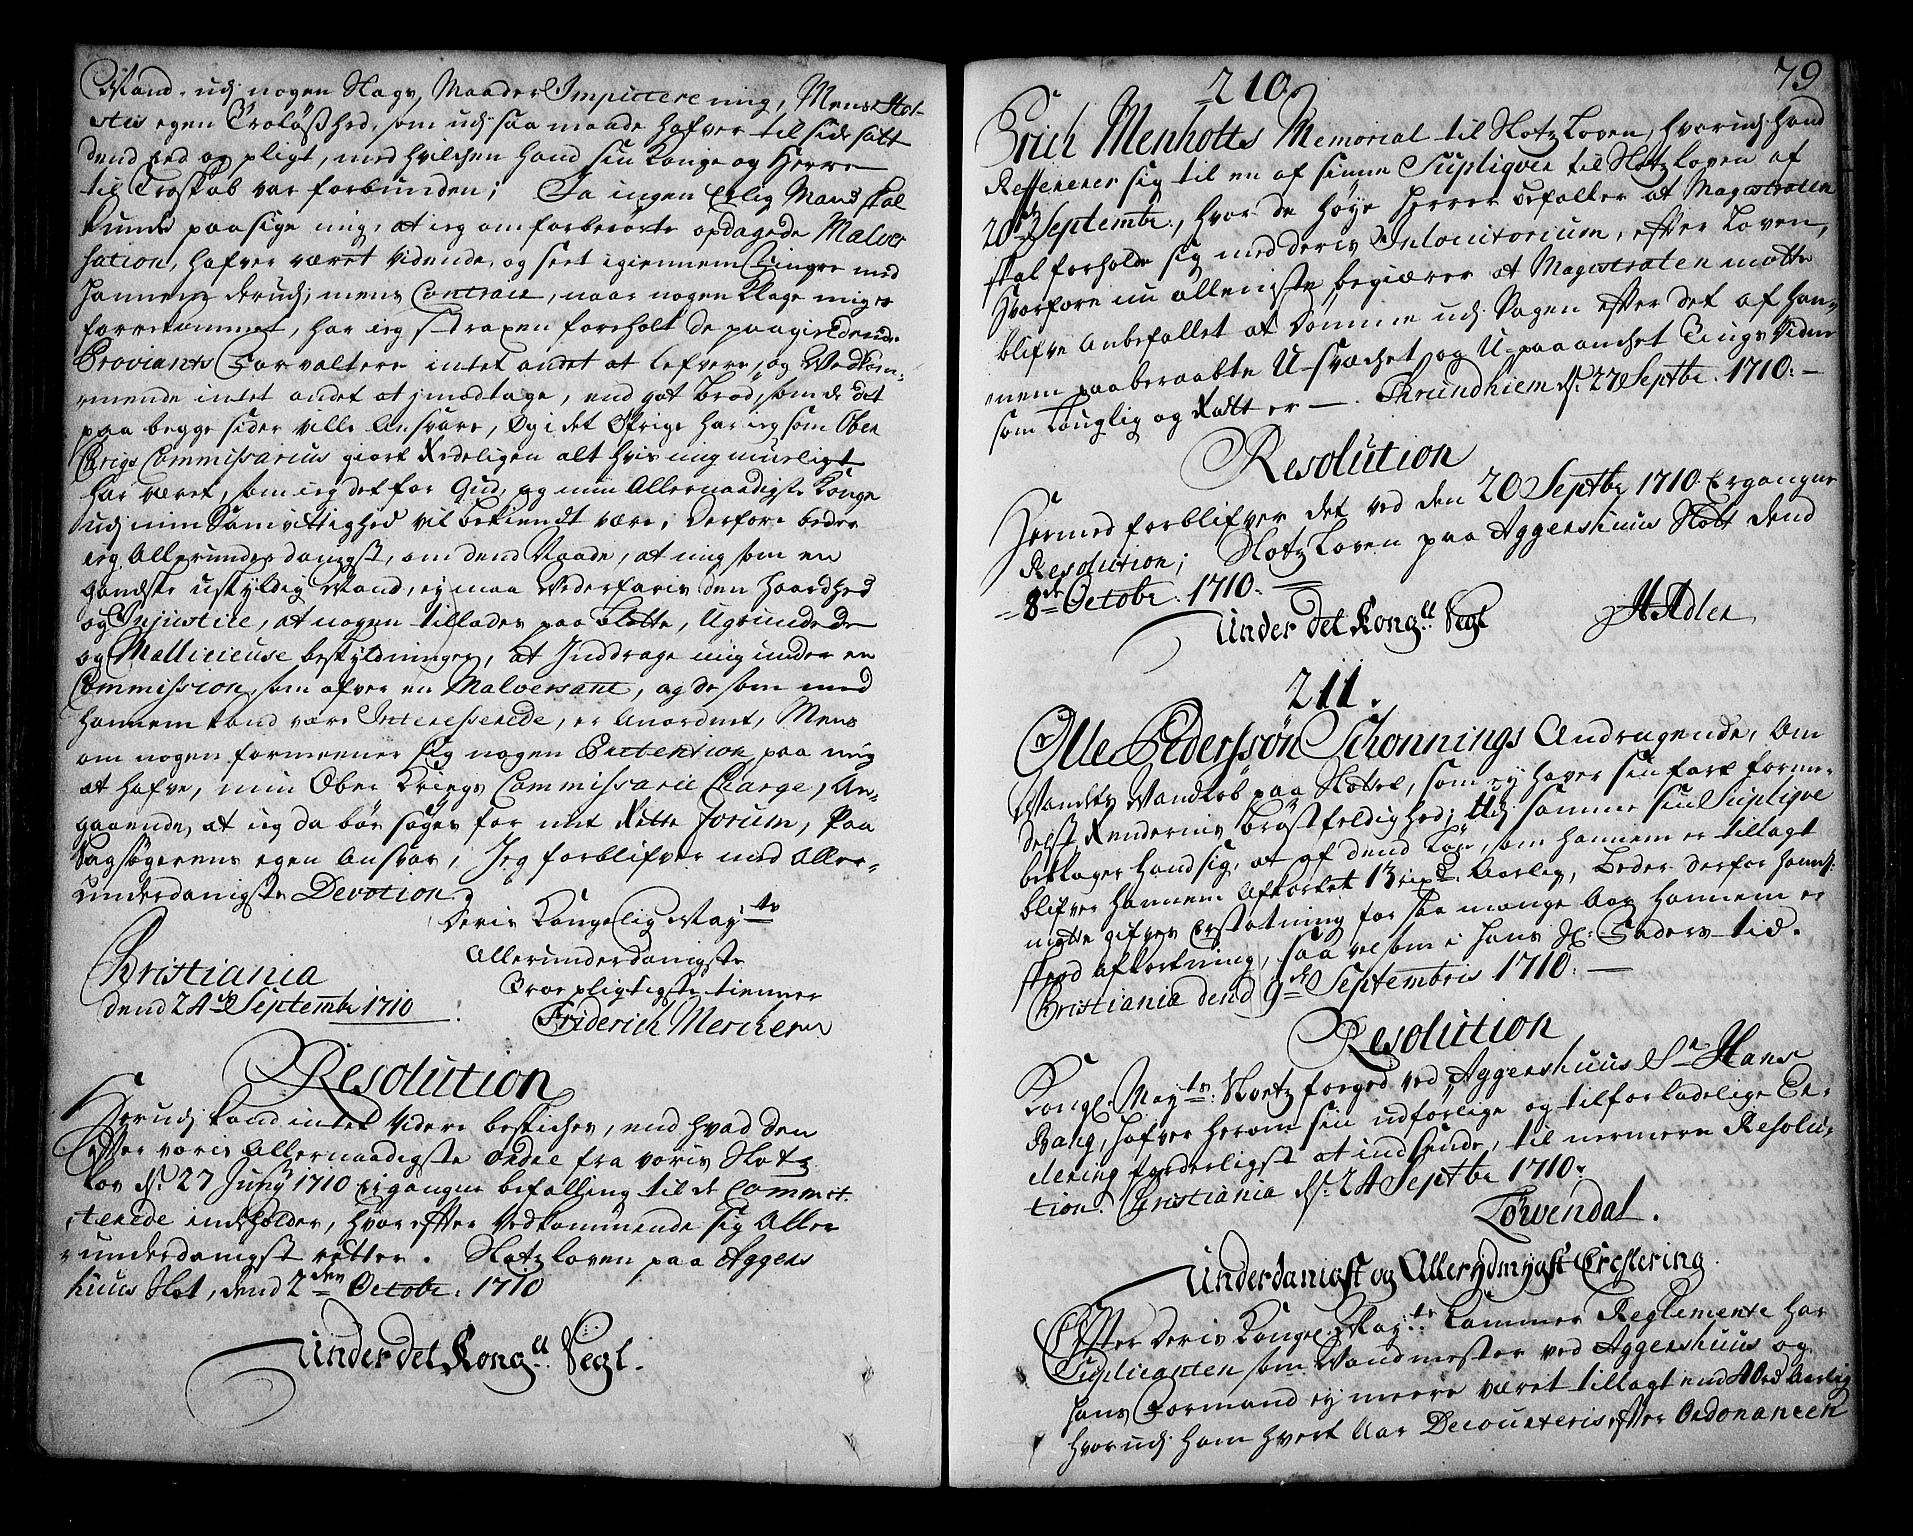 Mand, udj nogen Slags Maader Impittere mig, Mens Hol-
stis egen Troløßhed, som udj saa maade hafver til side satt
dend Eed og pligt, med hvilchen hand sin Konge og Herre
til Troskab var forbunden; Ja ingen Erlig Mand skal
kunde paasige mig, at ieg om forberørte opdagede Malver
sation, hafver været vidende, og seet igiennem Fingre med
hannem derudj, mens Contrarie, naar nogen Klage mig er
forrekommet, har ieg straxen foreholt de paagieldende
Proviants Forvaltere intet andet at lefvere, og Vedkom-
mende intet andet at jmodtage, end got Brød, som de det
paa begge sider ville Ansvare, Og i det Øfrige har ieg som Ober
Krigs Commissarius giort Redeligen alt hvis mig mueligt
har været, som ieg det for Gud, og min Allernaadigste Konge
udj min Samvittighed vil bekiendt være; Derfore beder
ieg Allerunderdanigst, om dend Naade, at mig som en
gandske uskyldig Mand, ey maa Vederfaris den Haardhed
og Injustice, at nogen tillades paa blotte, Ugrundede
og Mallicieuse beskyldninger, at Inddrage mig under en
Commission, som ofver en Malversant, og de som med
hannem kand være Interesserede, er Anordnet, Mens
om nogen formeener sig nogen Prætention paa mig
at hafve, min Ober Krigs Commissarie Charge, An-
gaaende, at ieg da bør søges for mit Rette Forum, paa
Sagsøgerens egen Ansvar, Jeg forblifver med Aller-
underdanigste Devotion
Deris Kongelig May:ts
Allerunderdanigste
Troe pligtigste tienner
Christiania
dend 24de Septembr 1710. Friderich Mercker
Resolution
Herudj kand intet videre beskichis, end hvad den
Efter voris Allernaadigste Ordre fra voris Slotz
lov d. 27 Junij 1710 Ergangne befalling til de Commit-
terede indeholder, hvorefter Vedkommende sig Aller
underdanigst retter. Slotz loven paa Aggers
huus Slot, dend 2den Octobr. 1710
Under det Kongll. Segl.
79
210.
Erich Menholtts Memorial til Slotz Loven, hvorudj hand
Refererer sig til en af sinne Supliqver til Slotz loven af
20de Septembr., hvor de høye Herrer befaller at Magistraten
skal forholde sig med deris Interlocutorium, efter Loven,
Hvorfore nu alleniste begiærer at Magistraten motte
blifve Anbefallet at Domme udj Sagen efter det af han-
nem paaberaabte U-svæchet og U-paaanchet Tings Vidne
som Louglig og Rætt er —. Thrundhiem d. 27 Septbr. 1710. —
Resolution
Hermed forblifver det ved den 20 Septbr 1710 Ergangne
Resolution; Slotz Loven paa Aggershuus Slott dend
8de Octobr. 1710.
Under det Kongll. Segl H Adler
211.
Olle Pedersøn Schonnings Andragende, Om
Vandets Vandløb paa Slottet, som ey haver sin fart forme-
delst Rendernis brøstfeldighed; Udj samme sin Suplique
beklager hand sig, at af dend Løn, som hannem er tillagt
blifver hannem Afkortet 13 rixd. Aarlig, beder derfor hannem
motte gifves Erstatning for saa mange Aar hannem er
skeed afkortning, saa vel som i hans Sl: Faders tid.
Christiania dend 9de Septembris 1710. —
Resolution
Kongl: May:ts Slotz foged ved Aggershuus Sr Hans
Bang, hafver herom sin udførlige og tilforladelige Er-
klering forderligst at indsende, til nermere Resolu-
tion. Christiania d. 24 Septbr 1710.
Löwendal.
Underdanigst og Allerydmygst Erclering
Efter Deris Kongl: May:ts Cammer Reglemente har
Suplicanten som Vandmester ved Aggershuus og
hans Formand ey meere været tillagt end 48rd Aarlig
hvorudj ham hvert Aar Decourteris efter Ordonancen